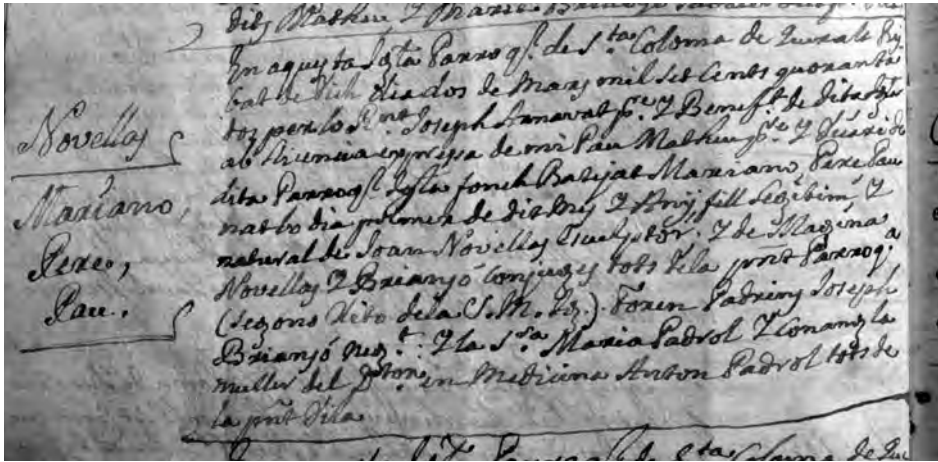 dits Matheu y Maria
Novellas
Mariano,
Pere,
Pau.
En aquesta Iglã Parroql. de Sta. Coloma de Queralt Bisbat
de Vich dia dos de Mars mil set Cents quoranta
per lo Rnt. Joseph pre. y Beneft. de dita Iglã
ab llicencia expressa de mi Pau Matheu pre. y Vicari de
dita Parroql. Iglã fonch Batejat Mariano, Pere Pau
nat lo dia primer de dit Mes y Any, fill llegitim y
natural de Joan Novellas Esculptor, y de Magina
Novellas y Brianjó Conjuges tots de la pnt Parroqa.
(segons Rito de la S. M. Ig.) Foren Padrins Joseph
Brianjó negt. y la Sra. Maria Padrol y
muller del Dtor. en Medicina Anton Padrol tots de
la pnt Vila
Parroql de Sta Coloma de